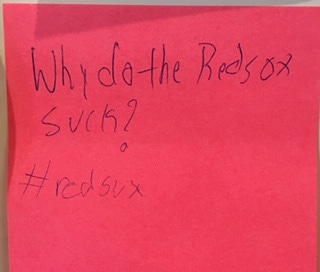 Why do the Redsox
suck?
#redsux